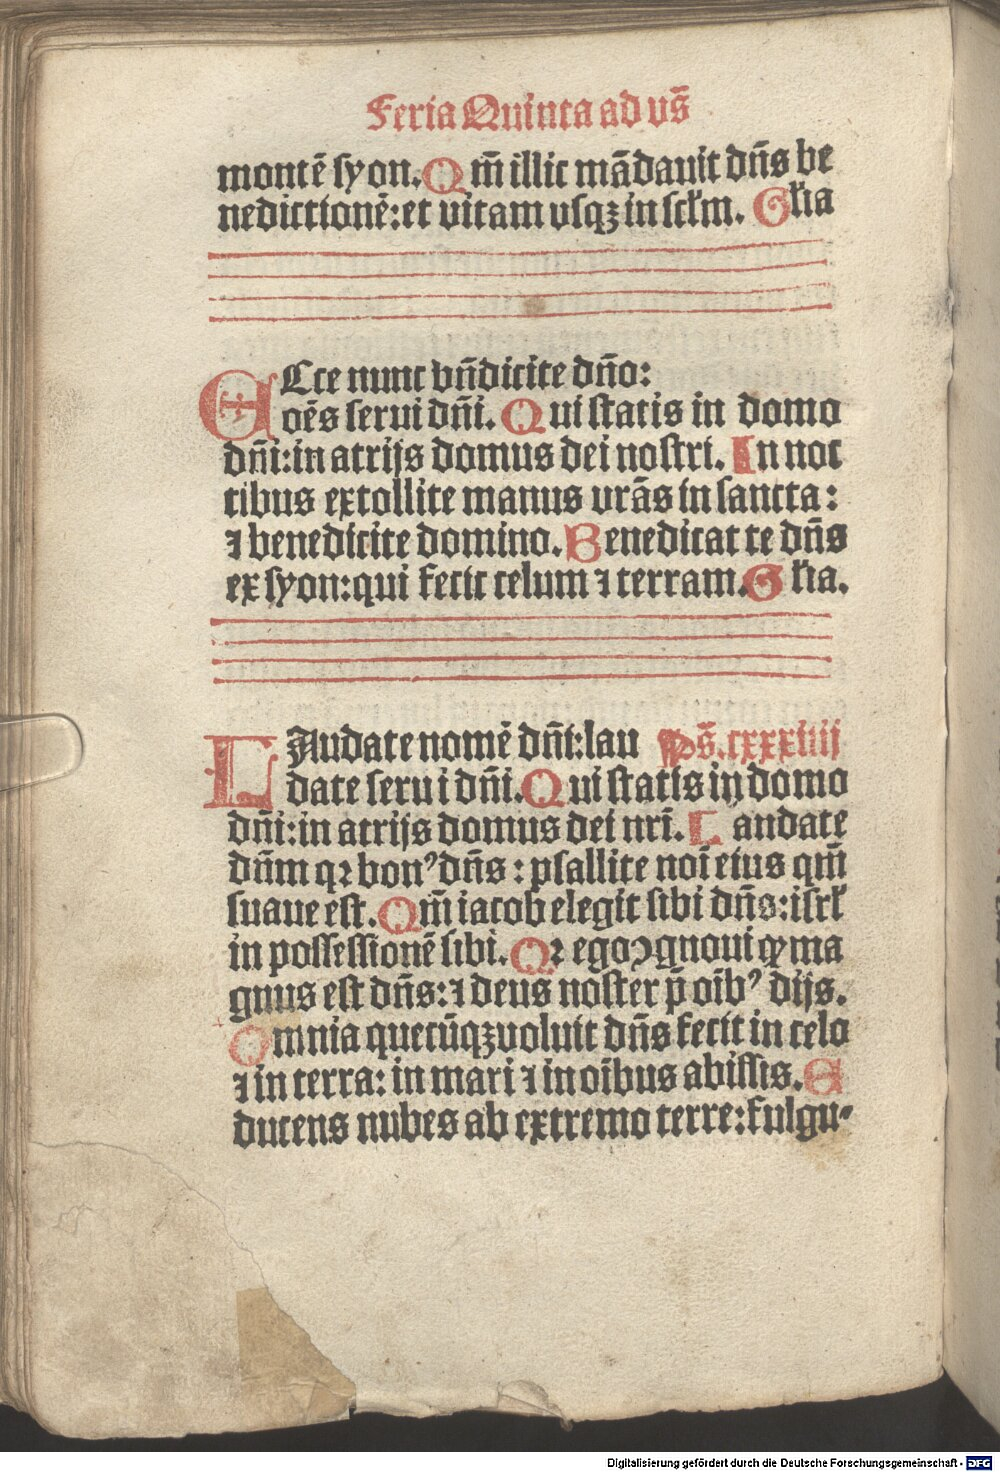 Feria Quinta ad vs̄
montē syon. Qm̄ illic mādauit dn̄s be
nedictionē: et vitam vsqꝫ in scl̄m. Gl̄ia
ECce nunc bn̄dicite dn̄o:
oēs serui dn̄i. Qui statis in domo
dn̄i: in atrijs domus dei nostri. In noc
tibus extollite manus vrās in sancta:
⁊ benedicite domino. Benedicat te dn̄s
ex syon: qui fecit celum ⁊ terram. Gl̄ia.
LAudate nomē dn̄i: lau Ps̄. cxxxiiij
date serui dn̄i. Qui statis in domo
dn̄i: in atrijs domus dei nrī. Laudate
dn̄m qꝛ bonꝰ dn̄s: psallite noī eius qm̄
suaue est. Qm̄ iacob elegit sibi dn̄s: isrl̄
in possessionē sibi. Qꝛ ego ꝯgnoui ꝙ ma
gnus est dn̄s: ⁊ deus noster p̄ oībꝰ dijs.
Omnia quecūqꝫ voluit dn̄s fecit in celo
⁊ in terra: in mari ⁊ in oībus abissis. E
ducens nubes ab extremo terre: fulgu⸗
Digitalisierung gefördert durch die Deutsche Forschungsgemeinschaft - DFG